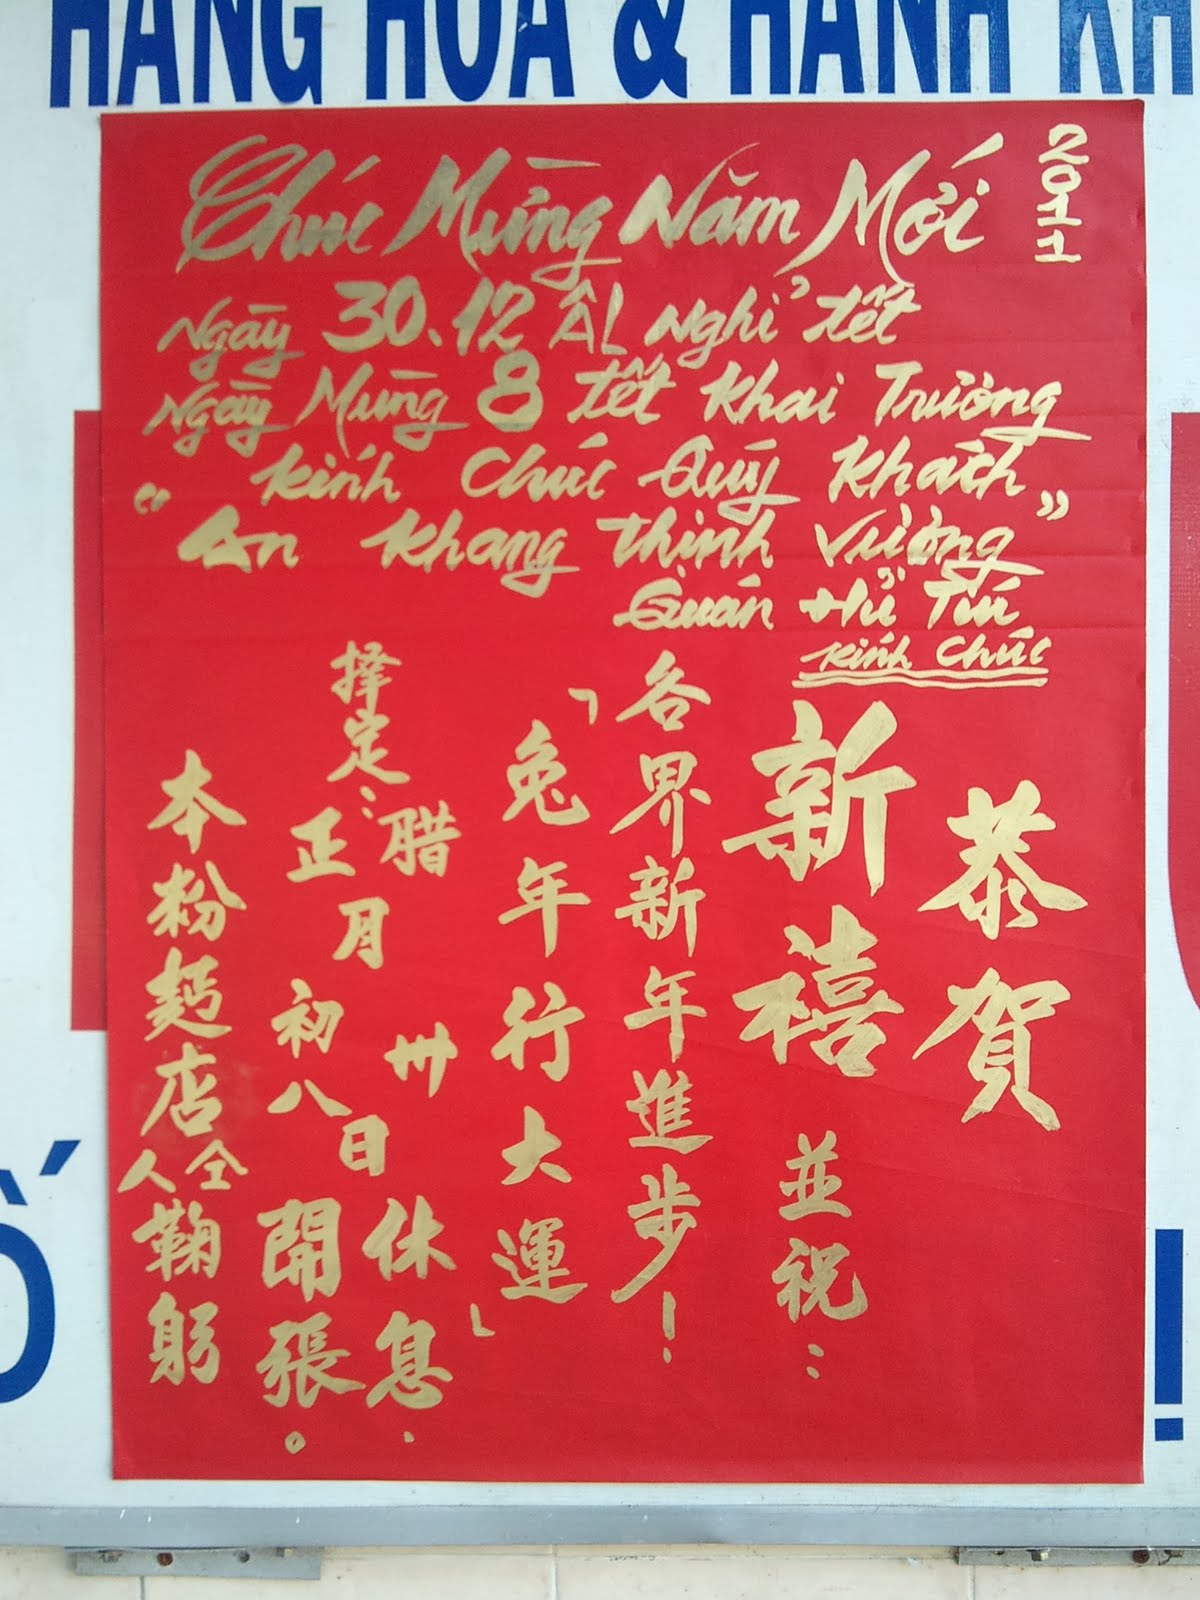 HÀNG HÓA & HÀNH KH
2011
Chúc Mừng Năm Mới
Ngày 30.12 ÂL nghỉ tết
Ngày Mùng 8 tết Khai Trương
Kính Chúc Quý Khách
"An Khang thịnh Vượng"
Quán Hủ Tíu
Kính Chúc
恭賀
新禧
並祝：
各界新年進步！
「兔年行大運」
擇定：
腊卅休息.
正月初八日開張。
本粉麵店仝人鞠躬